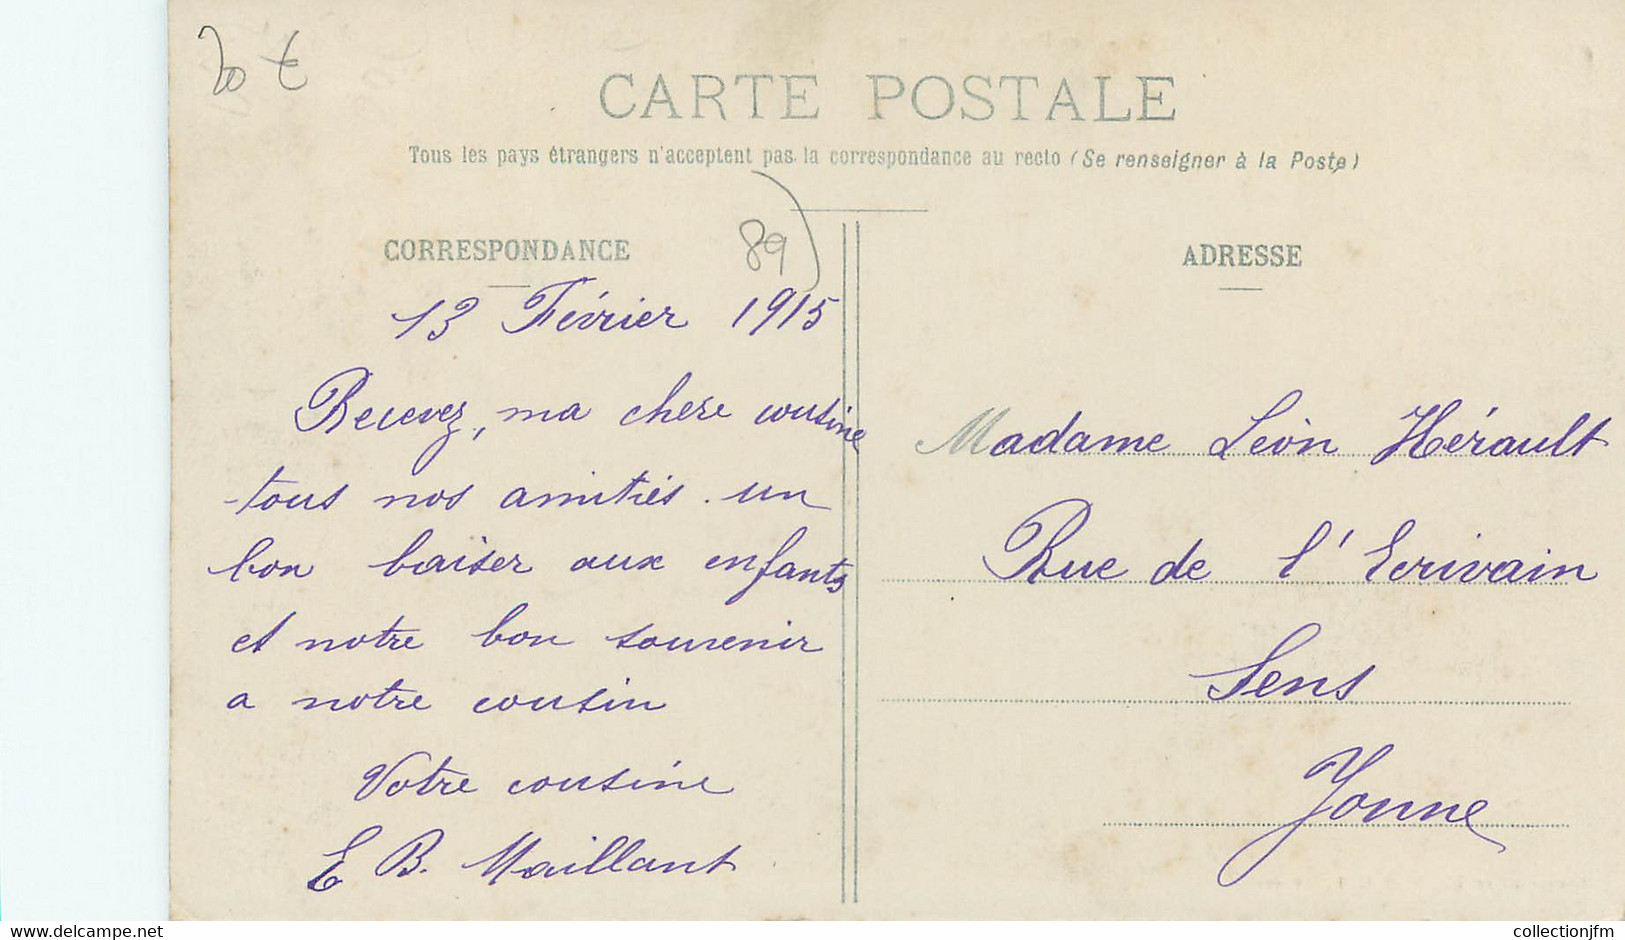 20 €
CARTE POSTALE
Tous les pays étrangers n'acceptent pas la correspondance au recto (Se renseigner à la Poste)
CORRESPONDANCE
89
13 Février 1915
Recevez, ma chere cousine
tous nos amitiés. un
bon baiser aux enfants
et notre bon souvenir
a notre cousin
Votre cousine
E B. Maillant
ADRESSE
Madame Léon Hérault
Rue de l'Ecrivain
Sens
Yonne
www.delcampe.net
collectionjfm